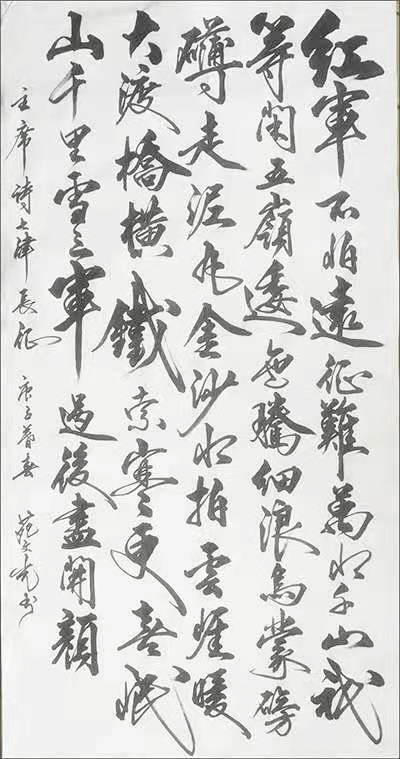 紅軍不怕遠征難萬水千山祇
等閑五嶺逶迤騰細浪烏蒙磅
礴走泥丸金沙水拍雲崖暖
大渡橋橫鐵索寒更喜岷
山千里雪三軍過後盡開顏
主席詩七律長征 庚子暮春 书